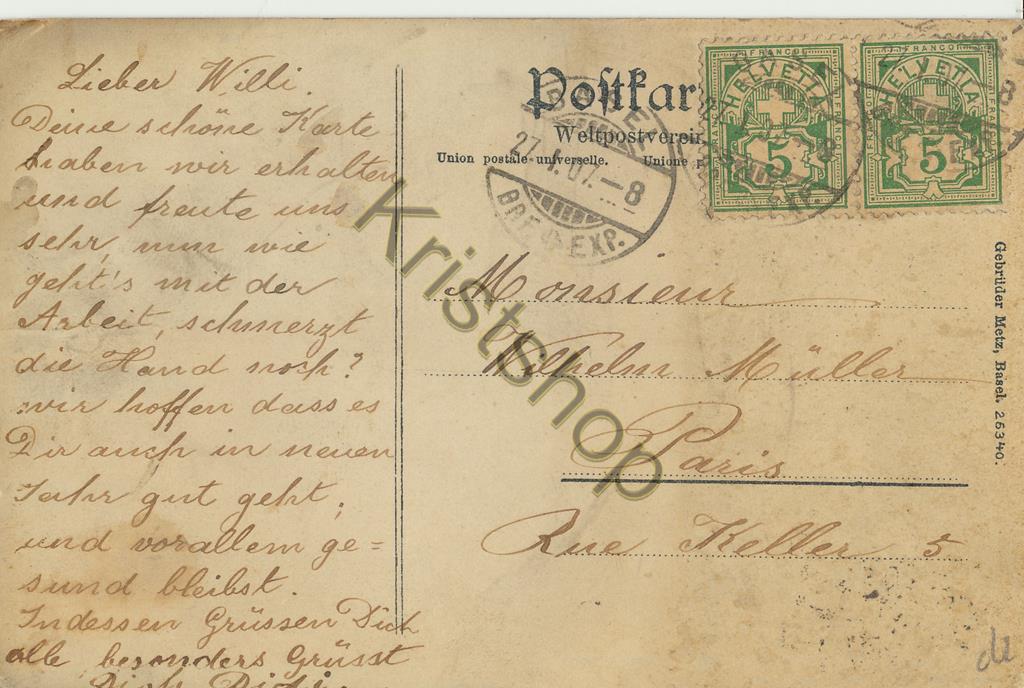 Lieber Willi.
Deine schöne Karte
haben wir erhalten
und freute uns
sehr, nun wie
geht's mit der
Arbeit, schmerzt
die Hand noch?
wir hoffen dass es
Dir auch in neuen
Jahr gut geht,
und vorallem ge=
sund bleibst.
Indessen Grüssen Dich
alle, besonders Grüsst
Dich
Postkar
Weltpostverein
Union postale universelle. Unione
BASEL
27.I.07.–8
BRF. EXP.
FRANCO
HELVETIA
5
FRANCO
HELVETIA
5
Monsieur
Wilhelm Müller
Paris
Rue Keller 5
Gebrüder Metz, Basel. 26340.
Kristshop